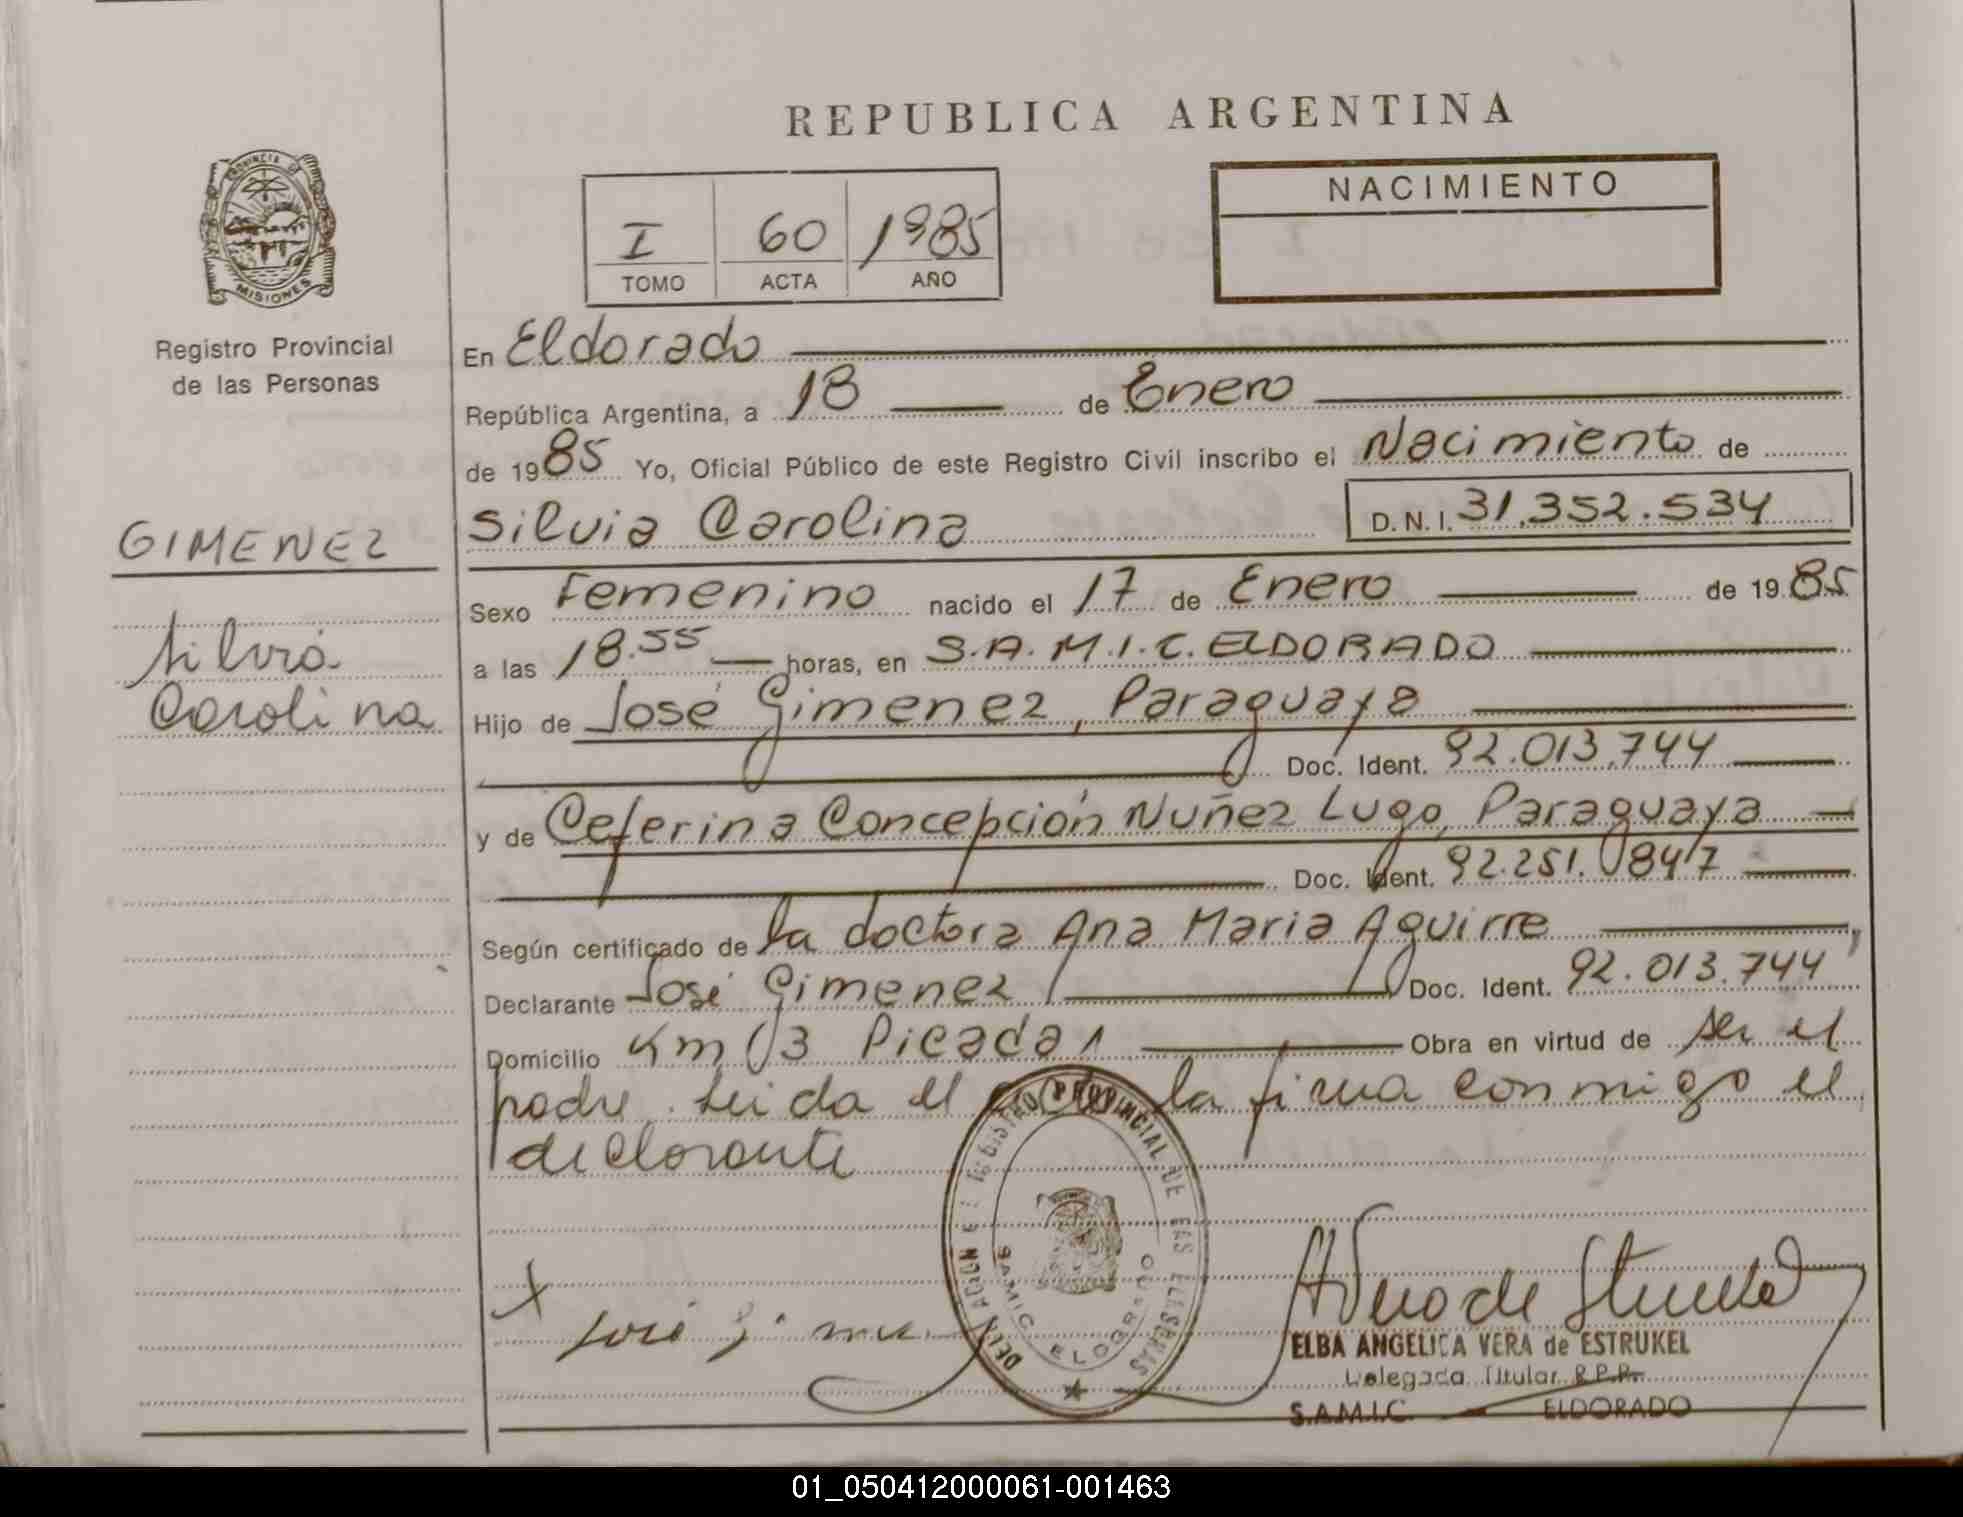 REPUBLICA ARGENTINA
PROVINCIA D
MISIONES
Registro Provincial
de las Personas
I 60 1985
TOMO ACTA AÑO
NACIMIENTO
En Eldorado
República Argentina, a 18 de Enero
de 1985 Yo, Oficial Público de este Registro Civil inscribo el Nacimiento de
Silvia Carolina D.N.I. 31.352.534
GIMENEZ
Silvia
Carolina
Sexo Femenino nacido el 17 de Enero de 1985
a las 18.55 horas, en S.A.M.I.C. ELDORADO
Hijo de José Gimenez, Paraguaya
Doc. Ident. 92.013.744
y de Ceferina Concepción Nuñez Lugo, Paraguaya
Doc. Ident. 92.251.847
Según certificado de la doctora Ana Maria Aguirre
Declarante José Gimenez Doc. Ident. 92.013.744
Domicilio Km 3 Picada 1 Obra en virtud de ser el
padre. Leida el la firma conmigo el
declarante
REGISTRO PROVINCIAL DE LAS PERSONAS
SAMIC ELDORADO
X José
ELBA ANGELICA VERA de ESTRUKEL
Delegada Titular R.P.P.
S.A.M.I.C. ELDORADO
01_050412000061-001463